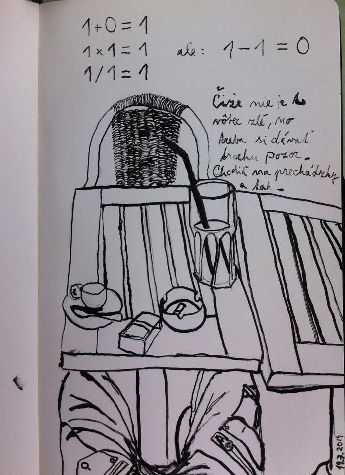 1+0=1
1×1=1 ale: 1-1=0
1/1=1
Čiže nie je to
vôbec zlé, no
treba si dávať
trochu pozor.
Chodiť na prechádzky
a tak.
18.7.2014